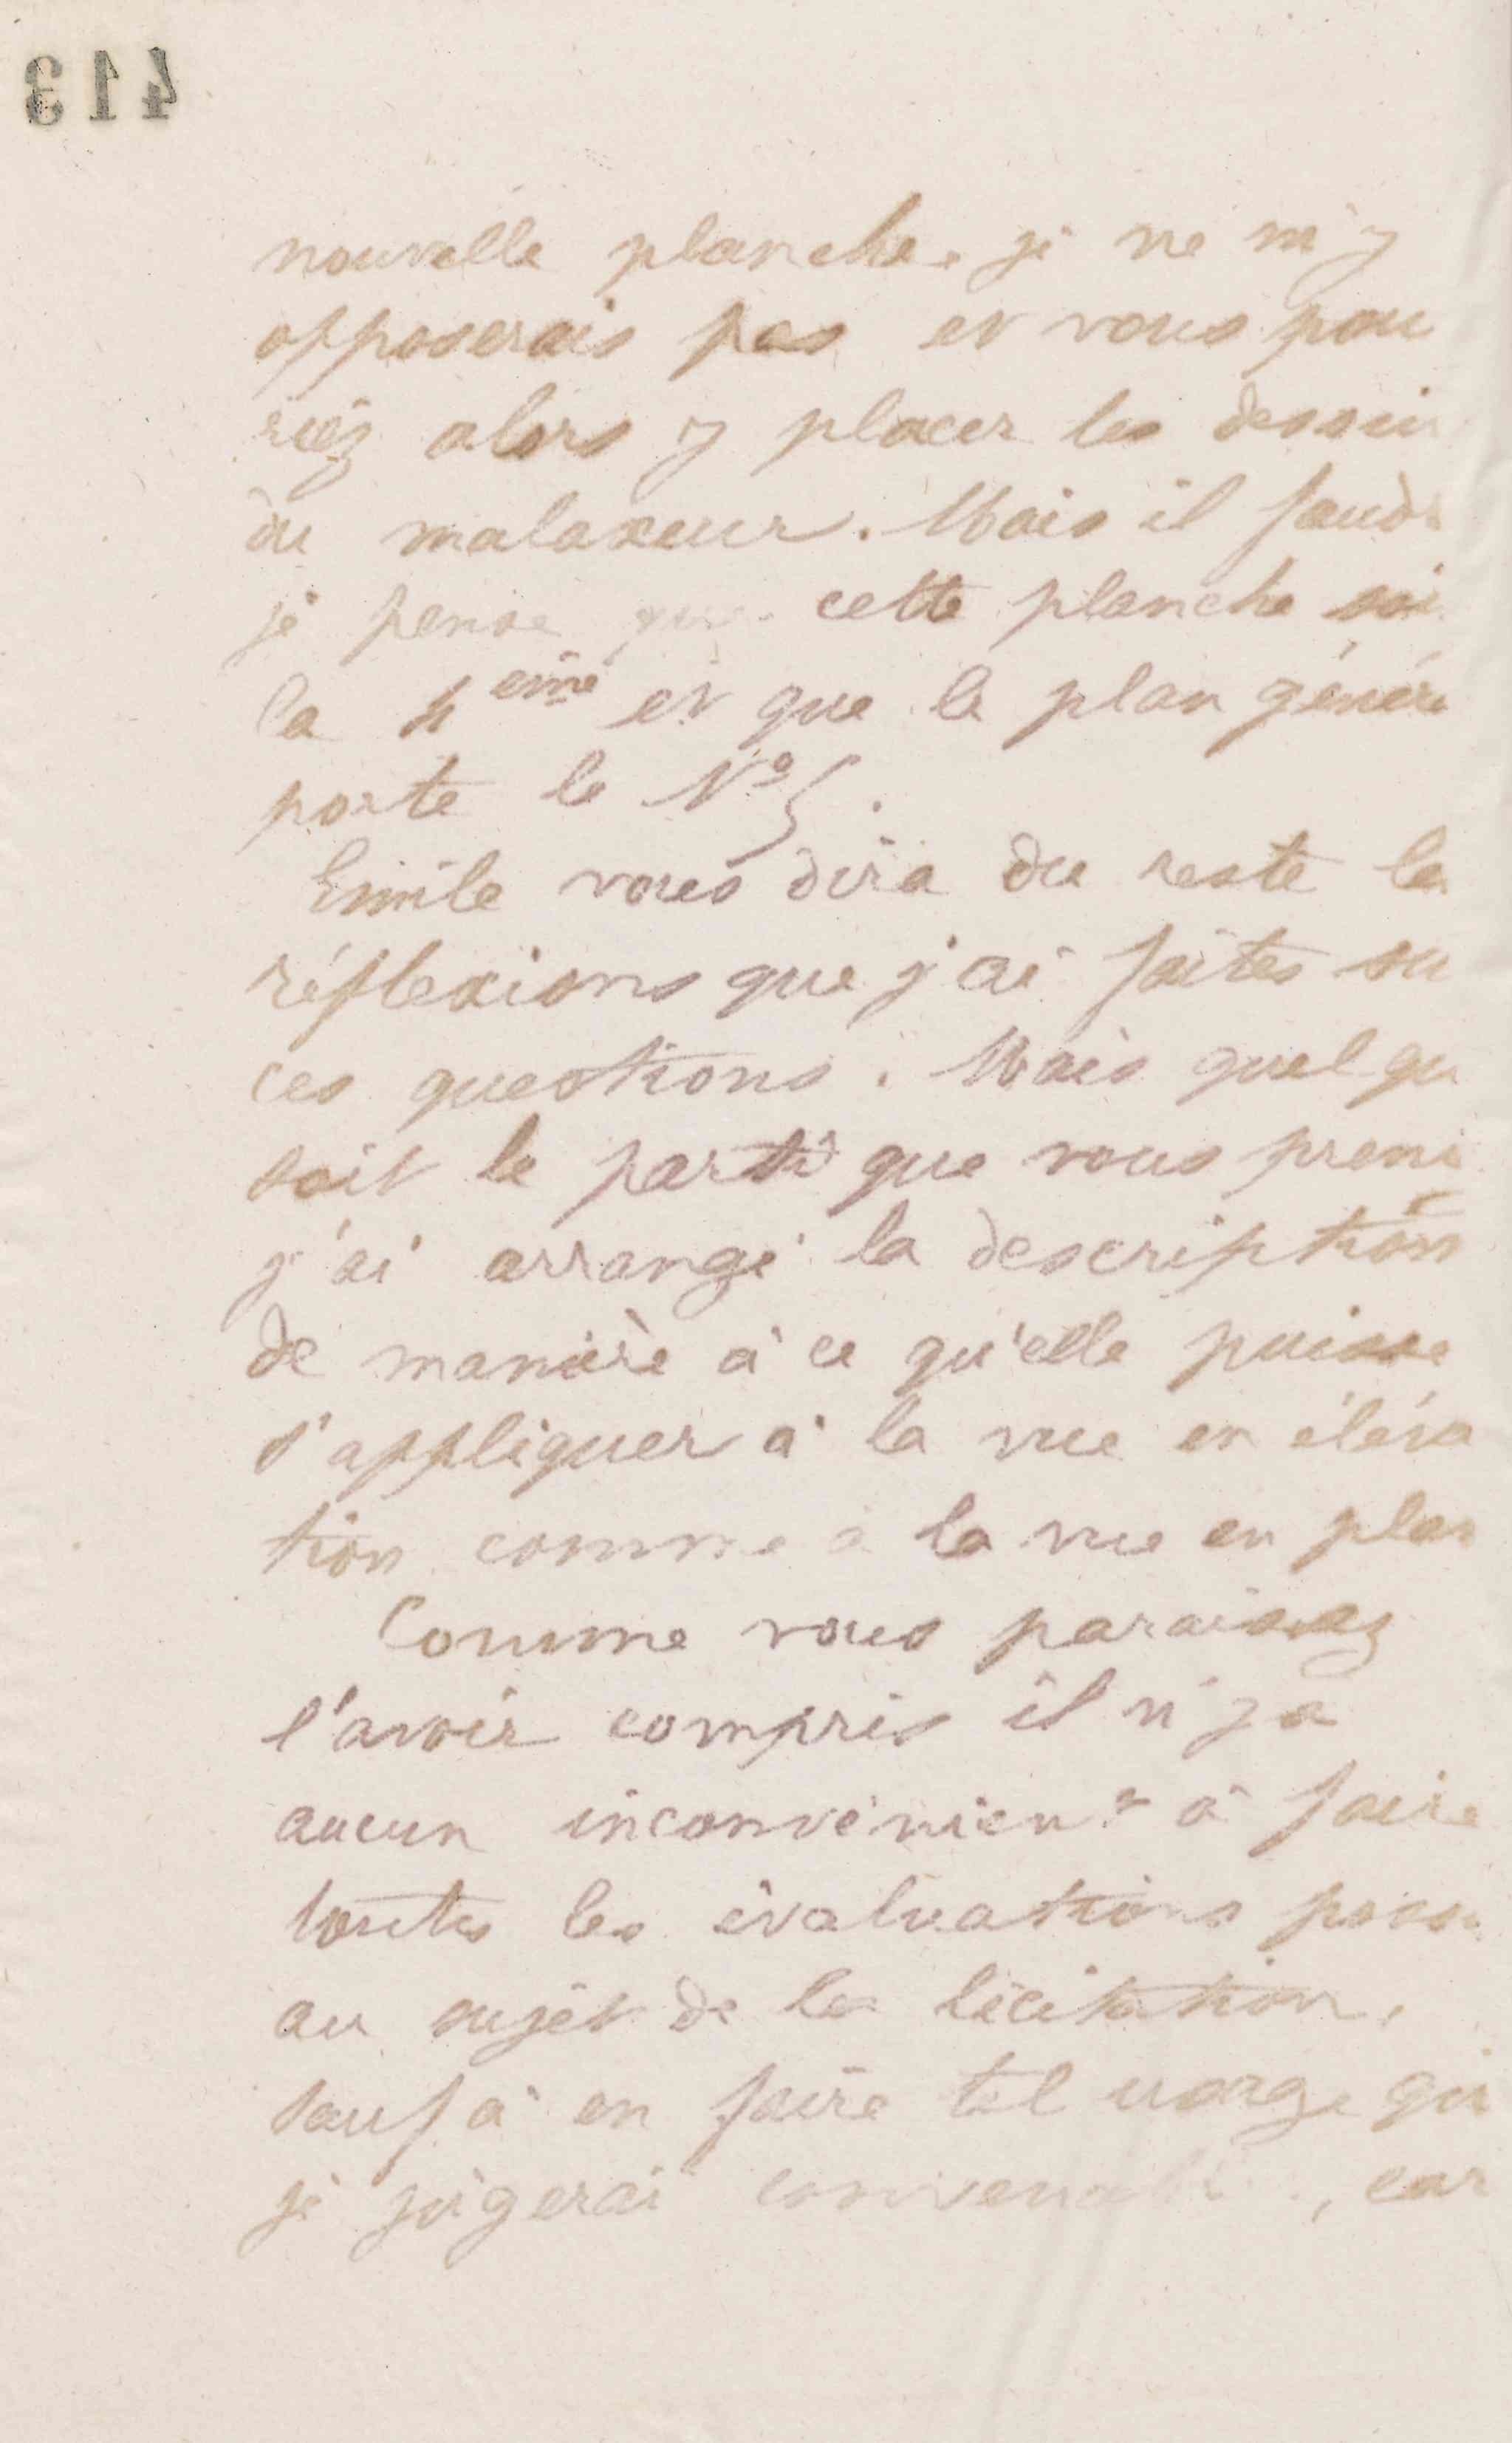 413
nouvelle planche. je ne m'y
opposerais pas et vous pou
riez alors y placer les dessin
du malaxeur. Mais il faudr
je pense que cette planche soi
la 4eme et que le plan généra
porte le No 5.
Emile vous dira du reste les
réflexions que j'ai faites su
ces questions. Mais quel qu
soit le parti que vous preni
j'ai arrangé la description
de manière à ce qu'elle puisse
s'appliquer à la vue en éléva
tion comme à la vue en plan
Comme vous paraissez
l'avoir compris il n'y a
aucun inconvénient à faire
toutes les évaluations poss
au sujet de la licitation,
sauf à en faire tel usage que
je jugerai convenable, car